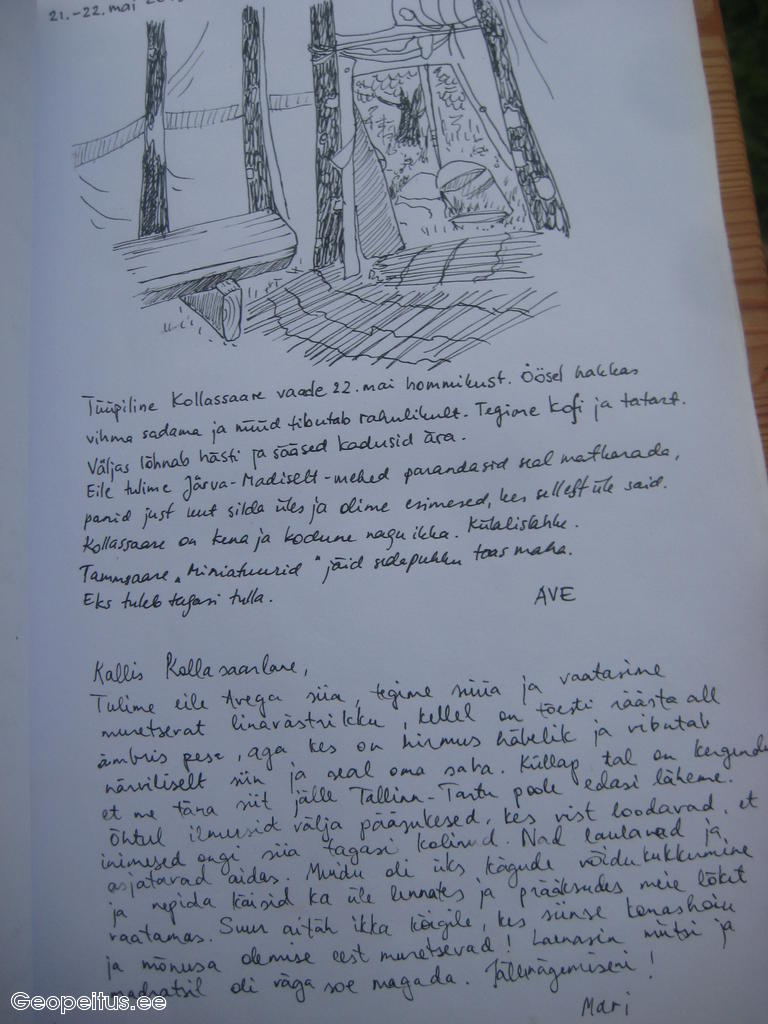 21.-22. mai
Tüüpiline Kollassaare vaade 22. mai hommikust. Öösel hakkas
vihma sadama ja nüüd tibutab rahulikult. Tegime kofi ja tatart.
Väljas lõhnab hästi ja sääsed kadusid ära.
Eile tulime Järva-Madiselt - mehed parandasid seal matkarada,
panid just uut silda üles ja olime esimesed, kes sellest üle said.
Kollassaare on kena ja kodune nagu ikka. Külalislahke.
Tammsaare "Miniatuurid" jäid sedapuhku taas maha.
Eks tuleb tagasi tulla.
AVE
Kallis Kollasaarlane,
Tulime eile Avega siia, tegime süüa ja vaatasime
muretsevat linavästrikku, kellel on tõesti räästa all
ämbris pesa, aga kes on hirmus häbelik ja vibutab
närviliselt siin ja seal oma saba. Küllap tal on kergendus
et me täna siit jälle Tallinn-Tartu poole edasi läheme.
Õhtul ilmusid välja pääsukesed, kes vist loodavad, et
inimesed ongi siia tagasi kolinud. Nad laulavad ja
asjatavad aidas. Muidu oli üks kägude võidukukkumine
ja nepida käisid ka üle lennates ja prääksudes meie lõket
vaatamas. Suur aitäh ikka kõigile, kes siinse korrashoiu
ja mõnusa olemise eest muretsevad! Laenasin mütsi ja
madratsil oli väga soe magada. Jällenägemiseni!
Mari
Geopeitus.ee